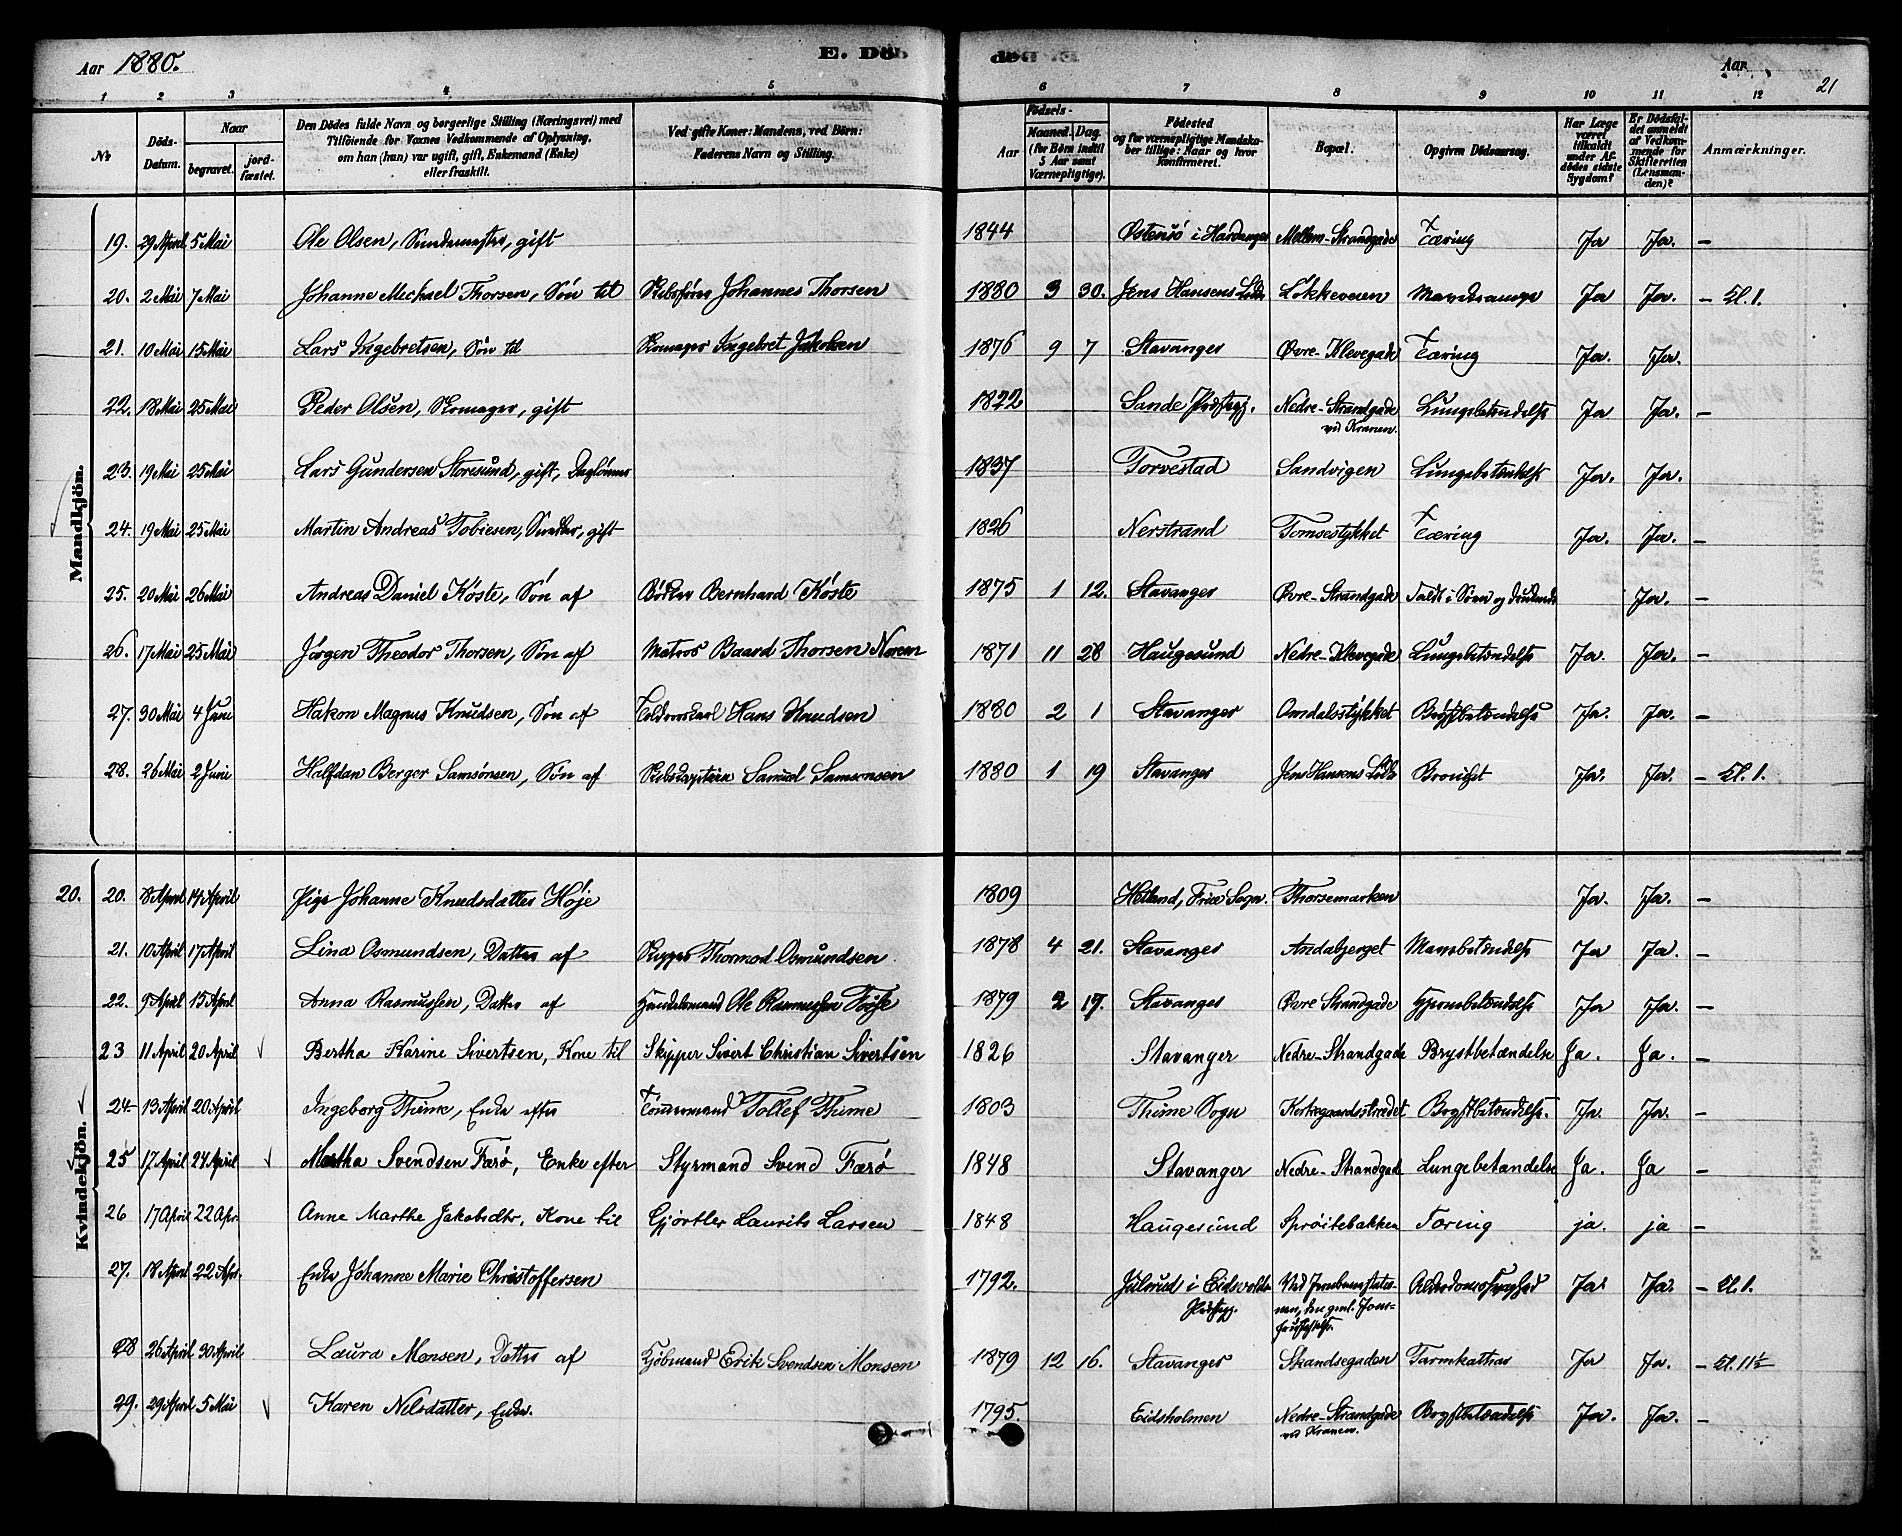 Aar 1880. E. Död E. Død Aar 21
1 2 3 4 5 6 7 8 9 10 11 12
No
Döds-Datum.
Naar begravet. jordfæstet.
Den Dödes fulde Navn og borgerlige Stilling (Næringsvei) med Tilföiende for Voxnes Vedkommende af Oplysning, om han (hun) var ugift, gift, Enkemand (Enke) eller fraskilt.
Ved gifte Koner: Mandens, ved Börn: Faderens Navn og Stilling.
Födsels-
Aar Maaned. Dag. (for Börn indtil 5 Aar samt Værnepligtige).
Födested og for værnepligtige Mandskaber tillige: Naar og hvor konfirmeret.
Bopæl.
Opgiven Dödsaarsag.
Har Læge været tilkaldt under Afdödes sidste Sygdom?
Er Dödsfaldet anmeldt af Vedkommende for Skifteretten (Lensmanden)?
Anmærkninger.
Mandkjön.
19. 29 April 5 Mai Ole Olsen, gift 1844 Østensö i Hardanger Mellem-Strandgade Tæring Ja Ja. –
20. 2 Mai 7 Mai Johanne Michael Thorsen, Sön til Skibsförer Johannes Thorsen 1880 3 30. Jens Hansens Løkkeveien Mavekrampe Ja Ja. – Kl. 1.
21. 10 Mai 15 Mai Lars Ingebretsen, Sön til Skomager Ingebret Jakobsen 1876 9 7 Stavanger Øvre-Klevegade Tæring Ja. Ja.
22. 18 Mai 25 Mai Peder Olsen, Skomager, gift 1822 Sande Nedre-Strandgade ved Kranen. Lungebetændelse Ja Ja. –
23. 19 Mai 25 Mai Lars Gundersen Storesund, gift, Daglönner 1837 Torvestad Sandvigen Lungebetændelse Ja. Ja.
24. 19 Mai 25 Mai Martin Andreas Tobiesen, Snedker, gift 1826 Nerstrand Tomsestykket Tæring Ja. Ja. –
25. 20 Mai 26 Mai Andreas Daniel Köste, Sön af Bödker Bernhard Köste 1875 1 12. Stavanger Øvre-Strandgade Faldt i Søen og druknede Ja. –
26. 17 Mai 25 Mai Jörgen Theodor Thorsen, Sön af Matros Baard Thorsen Norem 1871 11 28 Haugesund Nedre-Klevegade Lungebetændelse Ja. Ja. –
27. 30 Mai 4 Juni Hakon Magnus Knudsen, Sön af Hans Knudsen 1880 2 1 Stavanger Omdalsstykket Brystbetændelse Ja. Ja. –
28. 26 Mai 2 Juni Halfdan Berger Samsonsen, Sön af Skibskapitein Samuel Samsonsen 1880 1 19 Stavanger Jens Hansens Ja. Ja. – Kl. 1.
Kvindekjön.
20. 20. 8 April 14 April Pige Johanne Knudsdatter Höje 1809 Thorsemarken Ja. Ja. –
21. 10 April 17 April Lina Osmundsen, Datter af Skipper Thormod Osmundsen 1878 4 21. Stavanger Andabjerget Mavebetændelse Ja Ja. –
22. 9 April 15 April Anna Rasmussen, Datter af Handelsmand Ole Rasmussen 1879 2 17. Stavanger Øvre Strandgade Hjernebetændelse Ja Ja. –
23 11 April 20 April Bertha Karine Sivertsen, Kone til Skipper Sivert Christian Sivertsen 1826 Stavanger Nedre-Strandgade Brystbetændelse Ja. Ja. –
24 13 April 20 April Ingeborg Thime, Enke efter Tömmermand Tollef Thime 1803 Thime Sogn Kirkegaardsstrædet Brystbetændelse. Ja. Ja. –
25 17 April 24 April Martha Svendsen Færø, Enke efter Styrmand Svend Færø 1848 Stavanger Nedre-Strandgade Lungebetændelse Ja. Ja –
26 17 April 22 Apr. Anne Marthe Jakobsdtr., Kone til Gjörtler Laurits Larsen 1848 Haugesund Spröitebakken Tæring ja. ja –
27. 18 April 22 Apr. Enke Johanne Marie Christoffersen 1792. Julsrud i Eidsvolds Alderdomssvaghed Ja. Ja. – Kl. 1.
28 26 April 30 April Laura Monsen, Datter af Kjöbmand Erik Svendsen Monsen 1879 12 16. Stavanger Strandsegaden Tarmkatthar Ja Ja. – Kl. 11½
29. 29 April 5 Mai Karen Nilsdatter, Enke. 1795. Eidsholmen Nedre-Strandgade ved Kranen. Brystbetændelse Ja. Ja. –